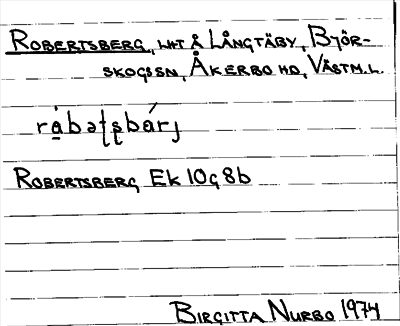 ROBERTSBERG, LHT Å LÅNGTÄBY, BJÖR-
SKOGS SN, ÅKERBO HD, VÄSTM.L.
rȧ̱bəʈʂbárj
ROBERTSBERG EK 10G 8b
BIRGITTA NURBO 1974